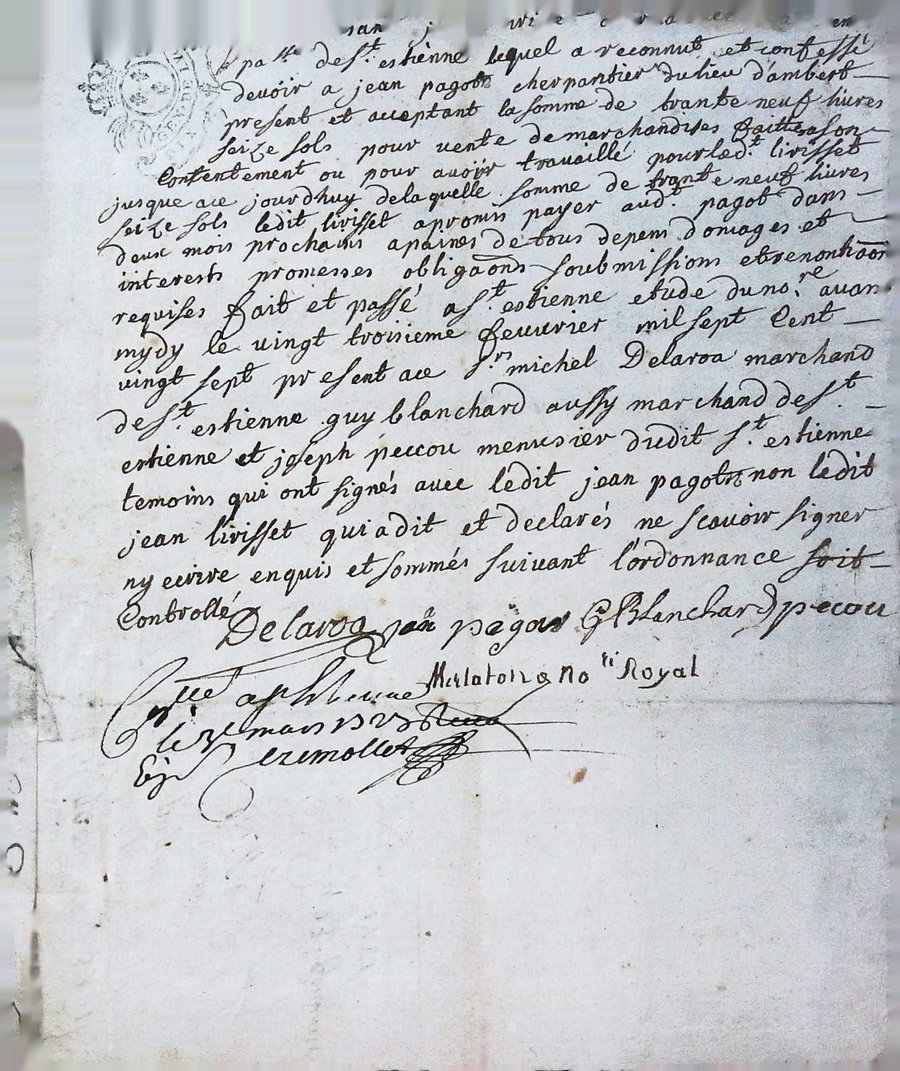 pa.sse de st. estienne lequel a reconnut et confessé
devoir a jean pagot cherpantier du lieu d'ambert
present et acceptant la somme de trante neuf livres
seize sols pour vente de marchandises faitte a son
Contentement ou pour avoir travaillé pour led.t livisset
jusque a ce jourdhuy de laquelle somme de trante neuf livres
seize sols ledit livisset a promis payer aud.t pagot dans
deux mois prochains a paines de tous depens domages et
interests promesses obligaons soubmissions et renontiaon
requises fait et passé a st. estienne etude du no.re avan
mydy le vingt troisieme feuvrier mil sept Cent
vingt sept present ace s.rs michel Delaroa marchand
de st. estienne guy blanchard aussy marchand de st.
estienne et joseph peccou menusier dudit st. estienne
temoins qui ont signés avec ledit jean pagot non ledit
jean livisset qui a dit et declarés ne scavoir signer
ny ecrire enquis et sommés suivant l'ordonnance soit
Controllé
Delaroa jean pagot G Blanchard pecou
no.re Royal
a st estienne
le mars 1727